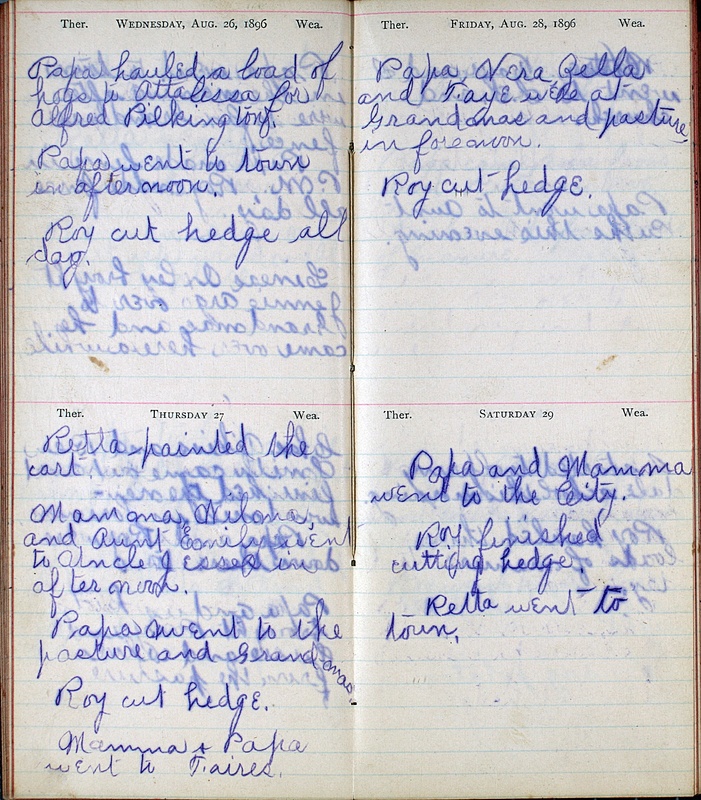 Ther. WEDNESDAY, AUG. 26, 1896 Wea.
Papa hauled a load of
hogs to Attalissa for
Alfred Pilkington.
Papa went to town
in afternoon.
Roy cut hedge all
day.
Ther. THURSDAY 27 Wea.
Retta painted the
cart.
Mamma, Wilma,
and Aunt Emily went
to Uncle Jesses in
afternoon.
Papa went to the
pasture and Grandmas
Roy cut hedge.
Mamma + Papa
went to Faires.
Ther. FRIDAY, AUG. 28, 1896 Wea.
Papa, Vera Zella
and Faye were at
Grandmas and pasture
in forenoon.
Roy cut hedge.
Ther. SATURDAY 29 Wea.
Papa and Mamma
went to the City.
Roy finished
cutting hedge.
Retta went to
town.